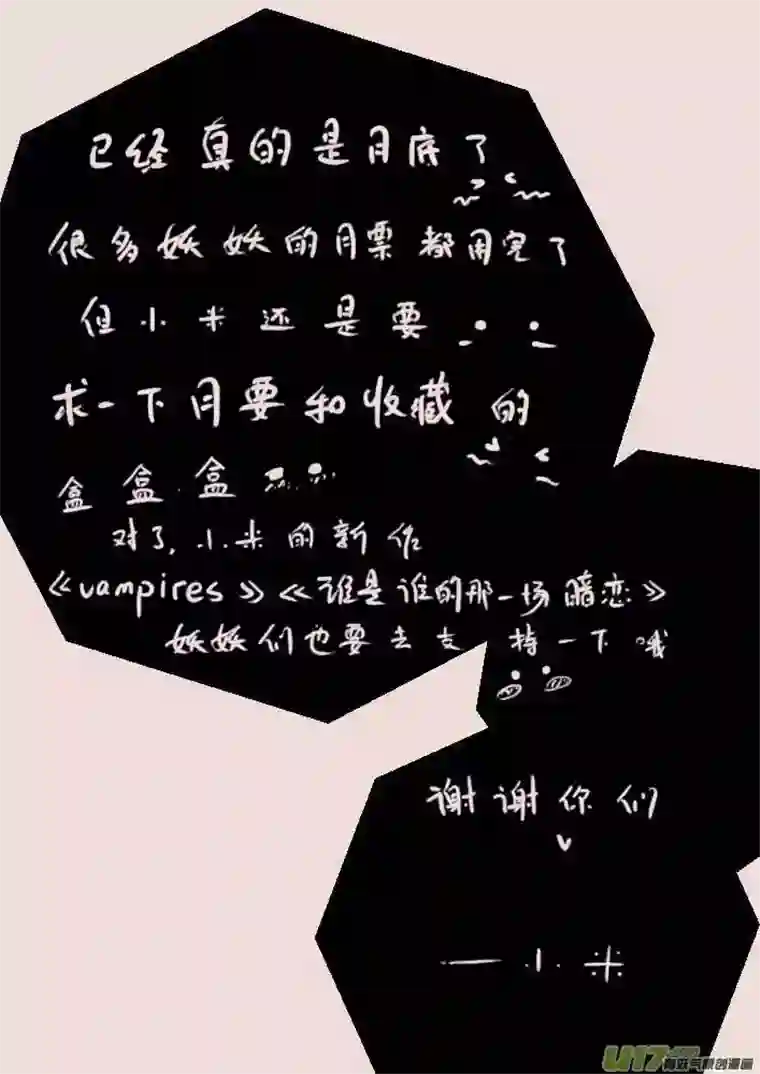 已经真的是月底了
很多妖妖的月票都用完了
但小米还是要
求一下月要和收藏的
盒盒盒
对了,小米的新作
《vampires》《谁是谁的那一场暗恋》
妖妖们也要去支持一下哦
谢谢你们
——小米
U17
有妖气原创漫画